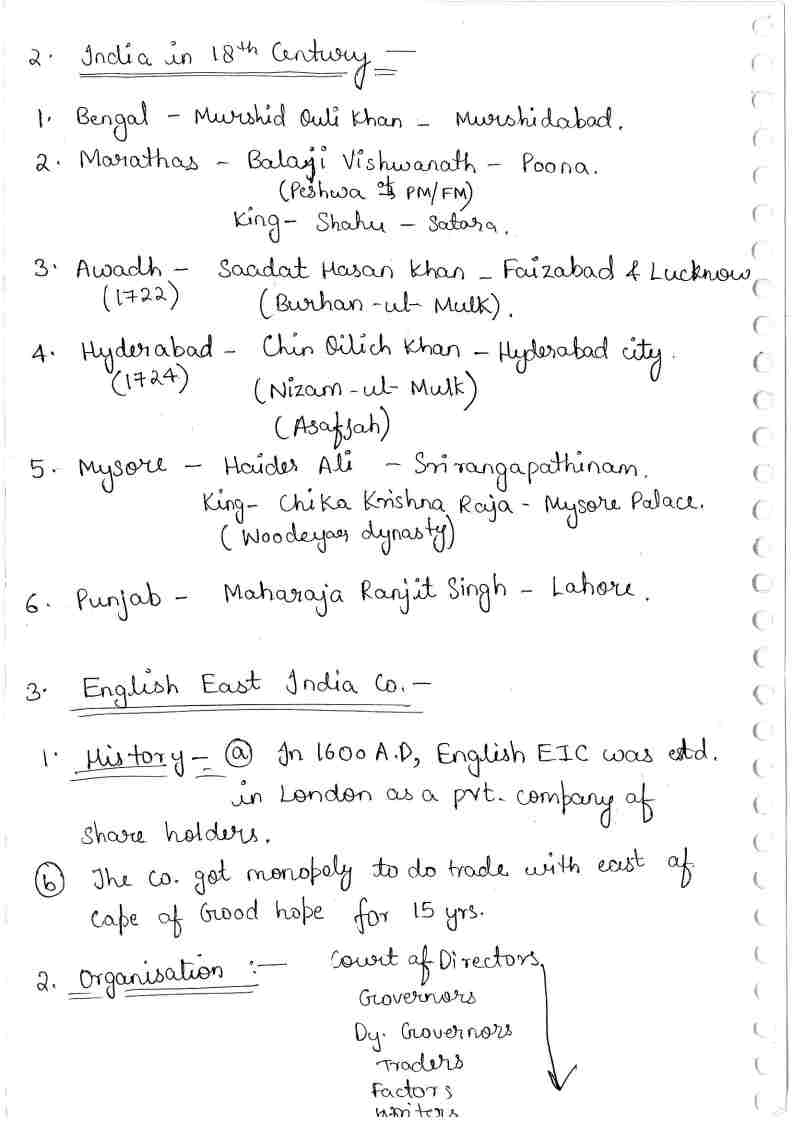 2. India in 18th Century –
1. Bengal - Murshid Quli Khan - Murshidabad.
2. Marathas - Balaji Vishwanath - Poona.
(Peshwa PM/FM)
King - Shahu - Satara.
3. Awadh - Saadat Hasan Khan - Faizabad & Lucknow
(1722) (Burhan-ul-Mulk).
4. Hyderabad - Chin Qilich Khan - Hyderabad city.
(1724) (Nizam-ul-Mulk)
(Asafjah)
5. Mysore - Haider Ali - Srirangapathinam.
King - Chika Krishna Raja - Mysore Palace.
(Woodeyar dynasty)
6. Punjab - Maharaja Ranjit Singh - Lahore.
3. English East India Co. –
1. History - (a) In 1600 A.D, English EIC was estd.
in London as a pvt. company of
share holders.
(b) The Co. got monopoly to do trade with east of
Cape of Good hope for 15 yrs.
2. Organisation :- Court of Directors
Governors
Dy. Governors
Traders
Factors
Writers